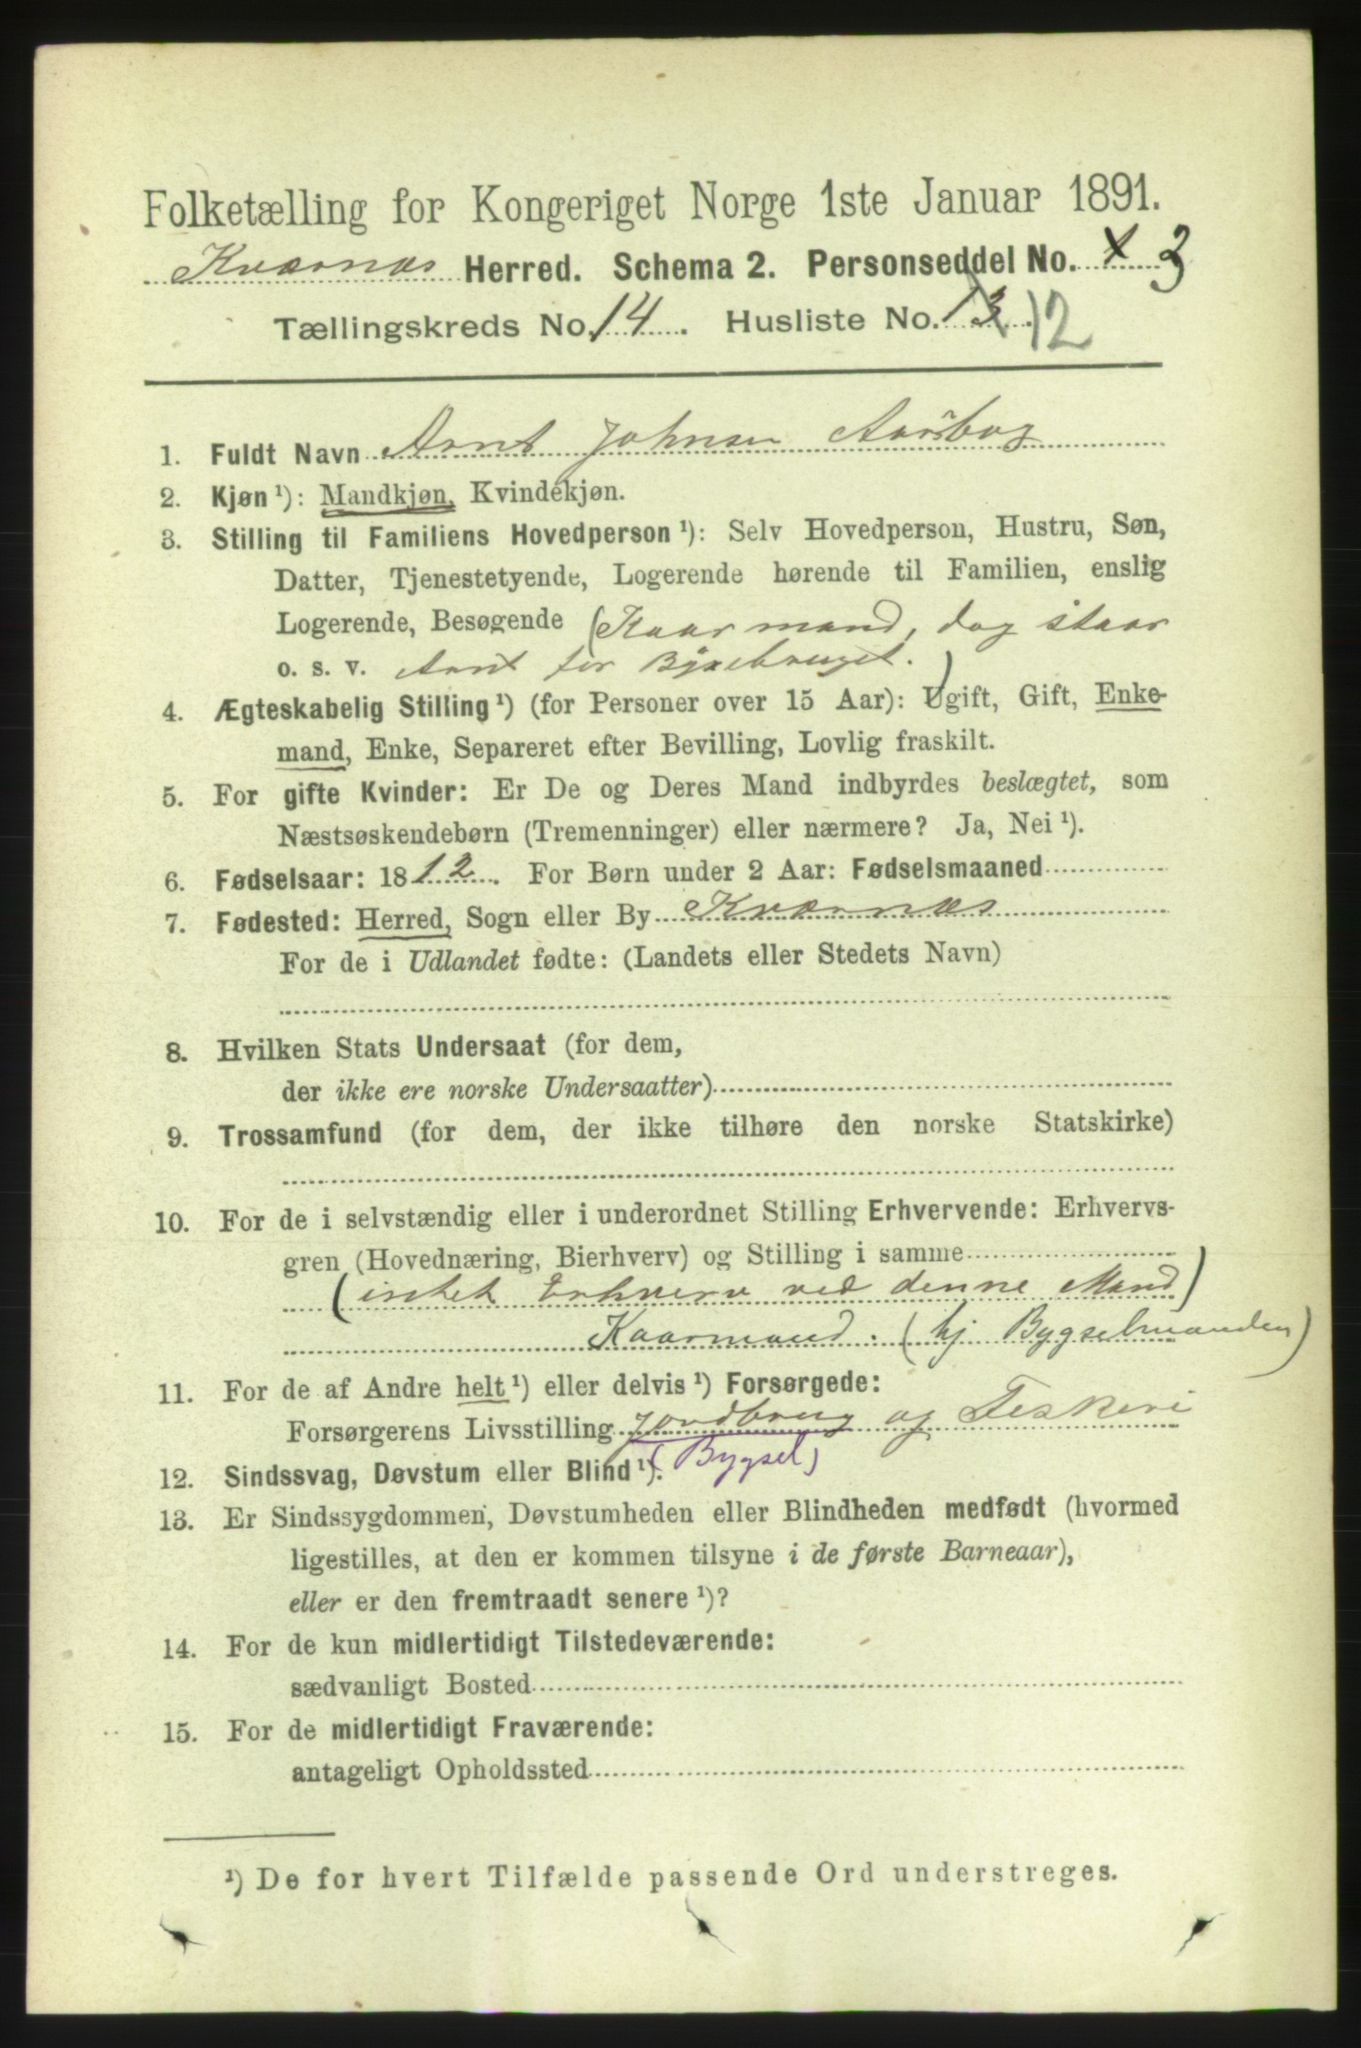 Folketælling for Kongeriget Norge 1ste Januar 1891.
Kværnæs Herred. Schema 2. Personseddel No. 3
Tællingskreds No. 14. Husliste No. 13 12
1. Fuldt Navn Arnt Johnsen Aarsbog
2. Kjøn ¹): Mandkjøn, Kvindekjøn.
3. Stilling til Familiens Hovedperson ¹): Selv Hovedperson, Hustru, Søn,
Datter, Tjenestetyende, Logerende hørende til Familien, enslig
Logerende, Besøgende (Kaarmand, dog staar
o. s. v. Arnt for Bygselbruget.)
4. Ægteskabelig Stilling ¹) (for Personer over 15 Aar): Ugift, Gift, Enke-
mand, Enke, Separeret efter Bevilling, Lovlig fraskilt.
5. For gifte Kvinder: Er De og Deres Mand indbyrdes beslægtet, som
Næstsøskendebørn (Tremenninger) eller nærmere? Ja, Nei ¹).
6. Fødselsaar: 1812. For Børn under 2 Aar: Fødselsmaaned
7. Fødested: Herred, Sogn eller By Kværnæs
For de i Udlandet fødte: (Landets eller Stedets Navn)
8. Hvilken Stats Undersaat (for dem,
der ikke ere norske Undersaatter)
9. Trossamfund (for dem, der ikke tilhøre den norske Statskirke)
10. For de i selvstændig eller i underordnet Stilling Erhvervende: Erhvervs-
gren (Hovednæring, Bierhverv) og Stilling i samme
(intet Erhverv ved denne Mand)
Kaarmand. (hj Bygselmanden)
11. For de af Andre helt ¹) eller delvis ¹) Forsørgede:
Forsørgerens Livsstilling Jordbrug og Fiskeri
(Bygsel)
12. Sindssvag, Døvstum eller Blind ¹).
13. Er Sindssygdommen, Døvstumheden eller Blindheden medfødt (hvormed
ligestilles, at den er kommen tilsyne i de første Barneaar),
eller er den fremtraadt senere ¹)?
14. For de kun midlertidigt Tilstedeværende:
sædvanligt Bosted
15. For de midlertidigt Fraværende:
antageligt Opholdssted
¹) De for hvert Tilfælde passende Ord understreges.